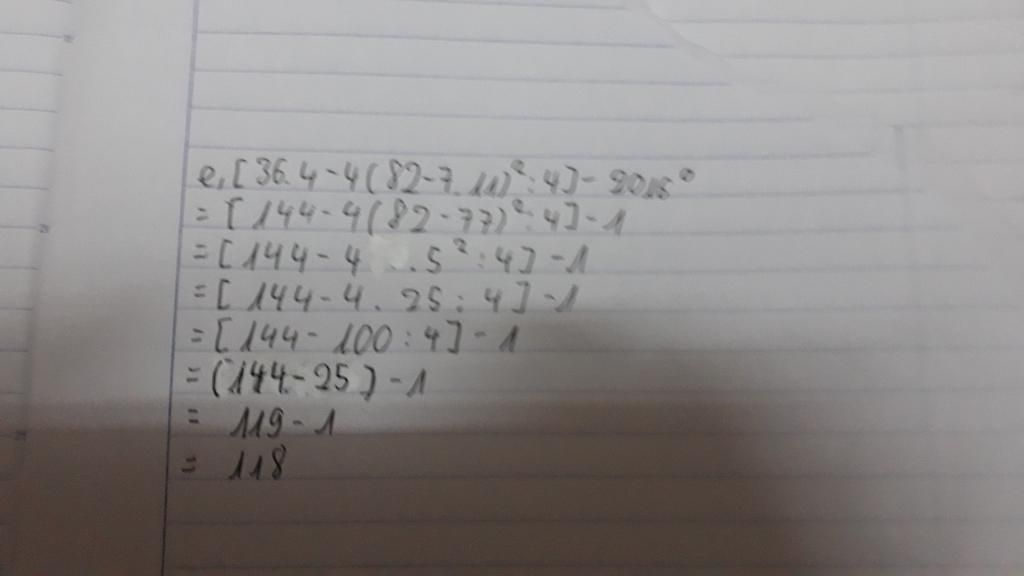 e, [36.4-4(82-7.11)²:4]-2016⁰
= [144-4(82-77)²:4]-1
= [144-4 .5²:4]-1
= [144-4.25:4]-1
= [144-100:4]-1
= (144-25)-1
= 119-1
= 118